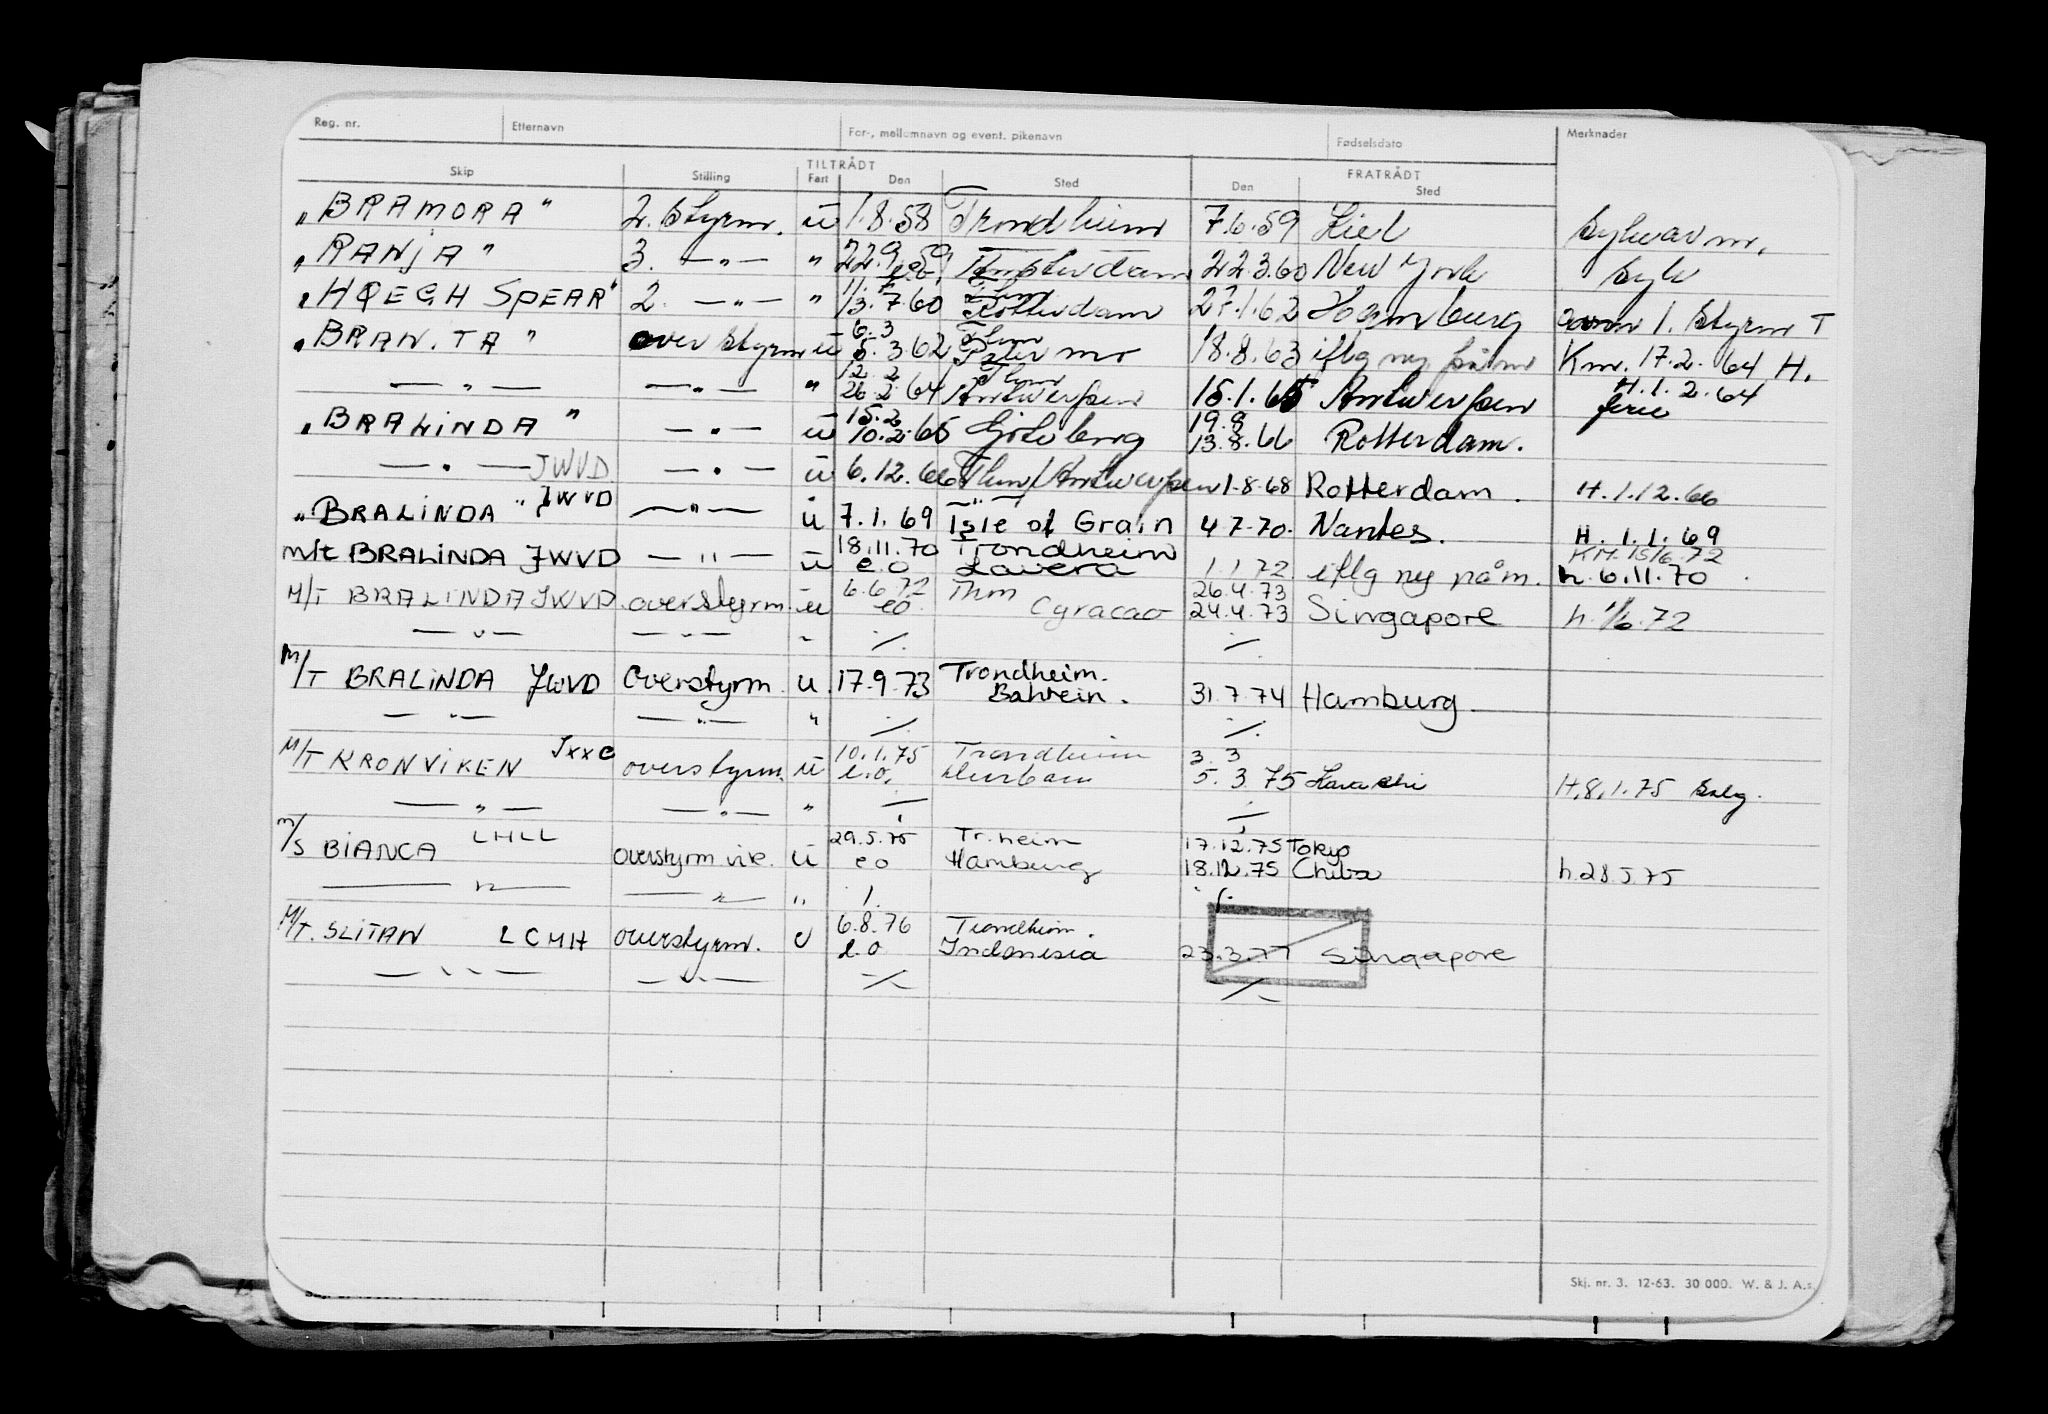 Reg. nr. Etternavn For-, mellomnavn og event. pikenavn Fødselsdato Merknader
TILTRÅDT FRATRÅDT
Skip Stilling Fart Den Sted Den Sted
"BRAMORA" 2. Styrm. ü 1.8.58 Trondheim 7.6.59 Kiel Sykvarm.
"RANJA" 3. —"— " 22.9.59 Amsterdam 22.3.60 New York Syk
"HØEGH SPEAR" 2. —"— " 13.7.60 Rotterdam 27.1.62 Hamburg 1. Styrm T
6.3 Thm
"BRAN.TA" overstyrm ü 5.3.62 18.8.63 iflg ny påm Km. 17.2.64 H.
12.2 Thm H.1.2.64
—"— —"— " 26.2.64 Antwerpen 15.1.65 Antwerpen ferie
15.2 19.8
"BRALINDA" —"— ü 10.2.65 Göteborg 13.8.66 Rotterdam.
—"— JWVD —"— ü 6.12.66 Thm/Antwerpen 1.8.68 Rotterdam. H.1.12.66
"BRALINDA" JWVD —"— ü 7.1.69 Isle of Grain 4.7.70. Nantes. H.1.1.69
18.11.70 Trondheim KM.15/6.72
m/t BRALINDA JWVD —"— ü e.o Lavera 1.1.72 iflg ny påm. h.6.11.70.
6.6.72 Thm 26.4.73
M/T BRALINDA JWVD. overstyrm. ü eo. Cyracao 24.4.73 Singapore h.1/6.72
—"— —"— " ./. ./.
Trondheim.
M/T BRALINDA JWVD Overstyrm. u. 17.9.73 Bahrein. 31.7.74 Hamburg.
—"— —"— " ./. ./.
10.1.75 Trondheim 3.3
M/T KRONVIKEN JXXC overstyrm. ü e.o. Durban 5.3.75 H.8.1.75
—"— —"— " ./. ./.
29.5.75 Tr.heim 17.12.75 Tokyo
m/s BIANCA LHLL overstyrm vik. ü eo Hamburg 18.12.75 Chiba h.28.5.75
—"— —"— " ./. ./.
6.8.76 Trondheim.
M/T. SLITAN LCMH overstyrm. U e.o Indonesia 23.3.77 Singapore
—"— —"— ./. ./.
Skj. nr. 3. 12-63. 30 000. W. & J. A.s.